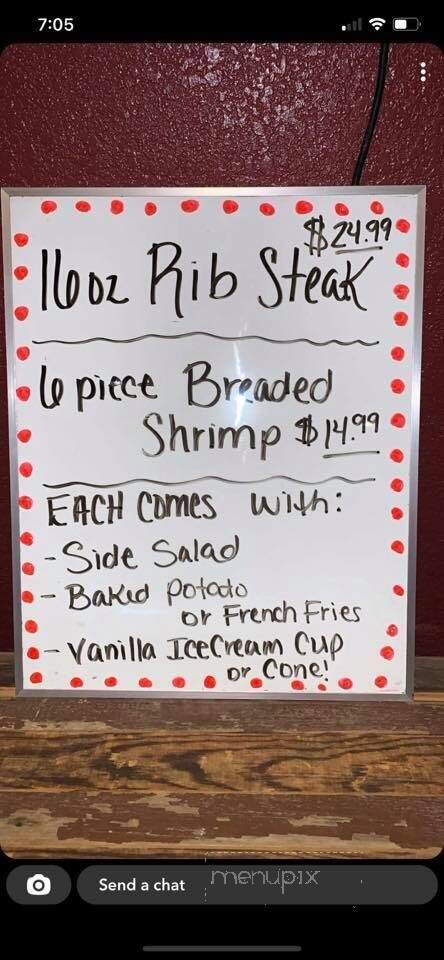 7:05
$24.99
16oz Rib Steak
6 piece Breaded
Shrimp $14.99
EACH Comes With:
- Side Salad
- Baked Potato
or French Fries
- Vanilla IceCream Cup
or Cone!
Send a chat
menupix